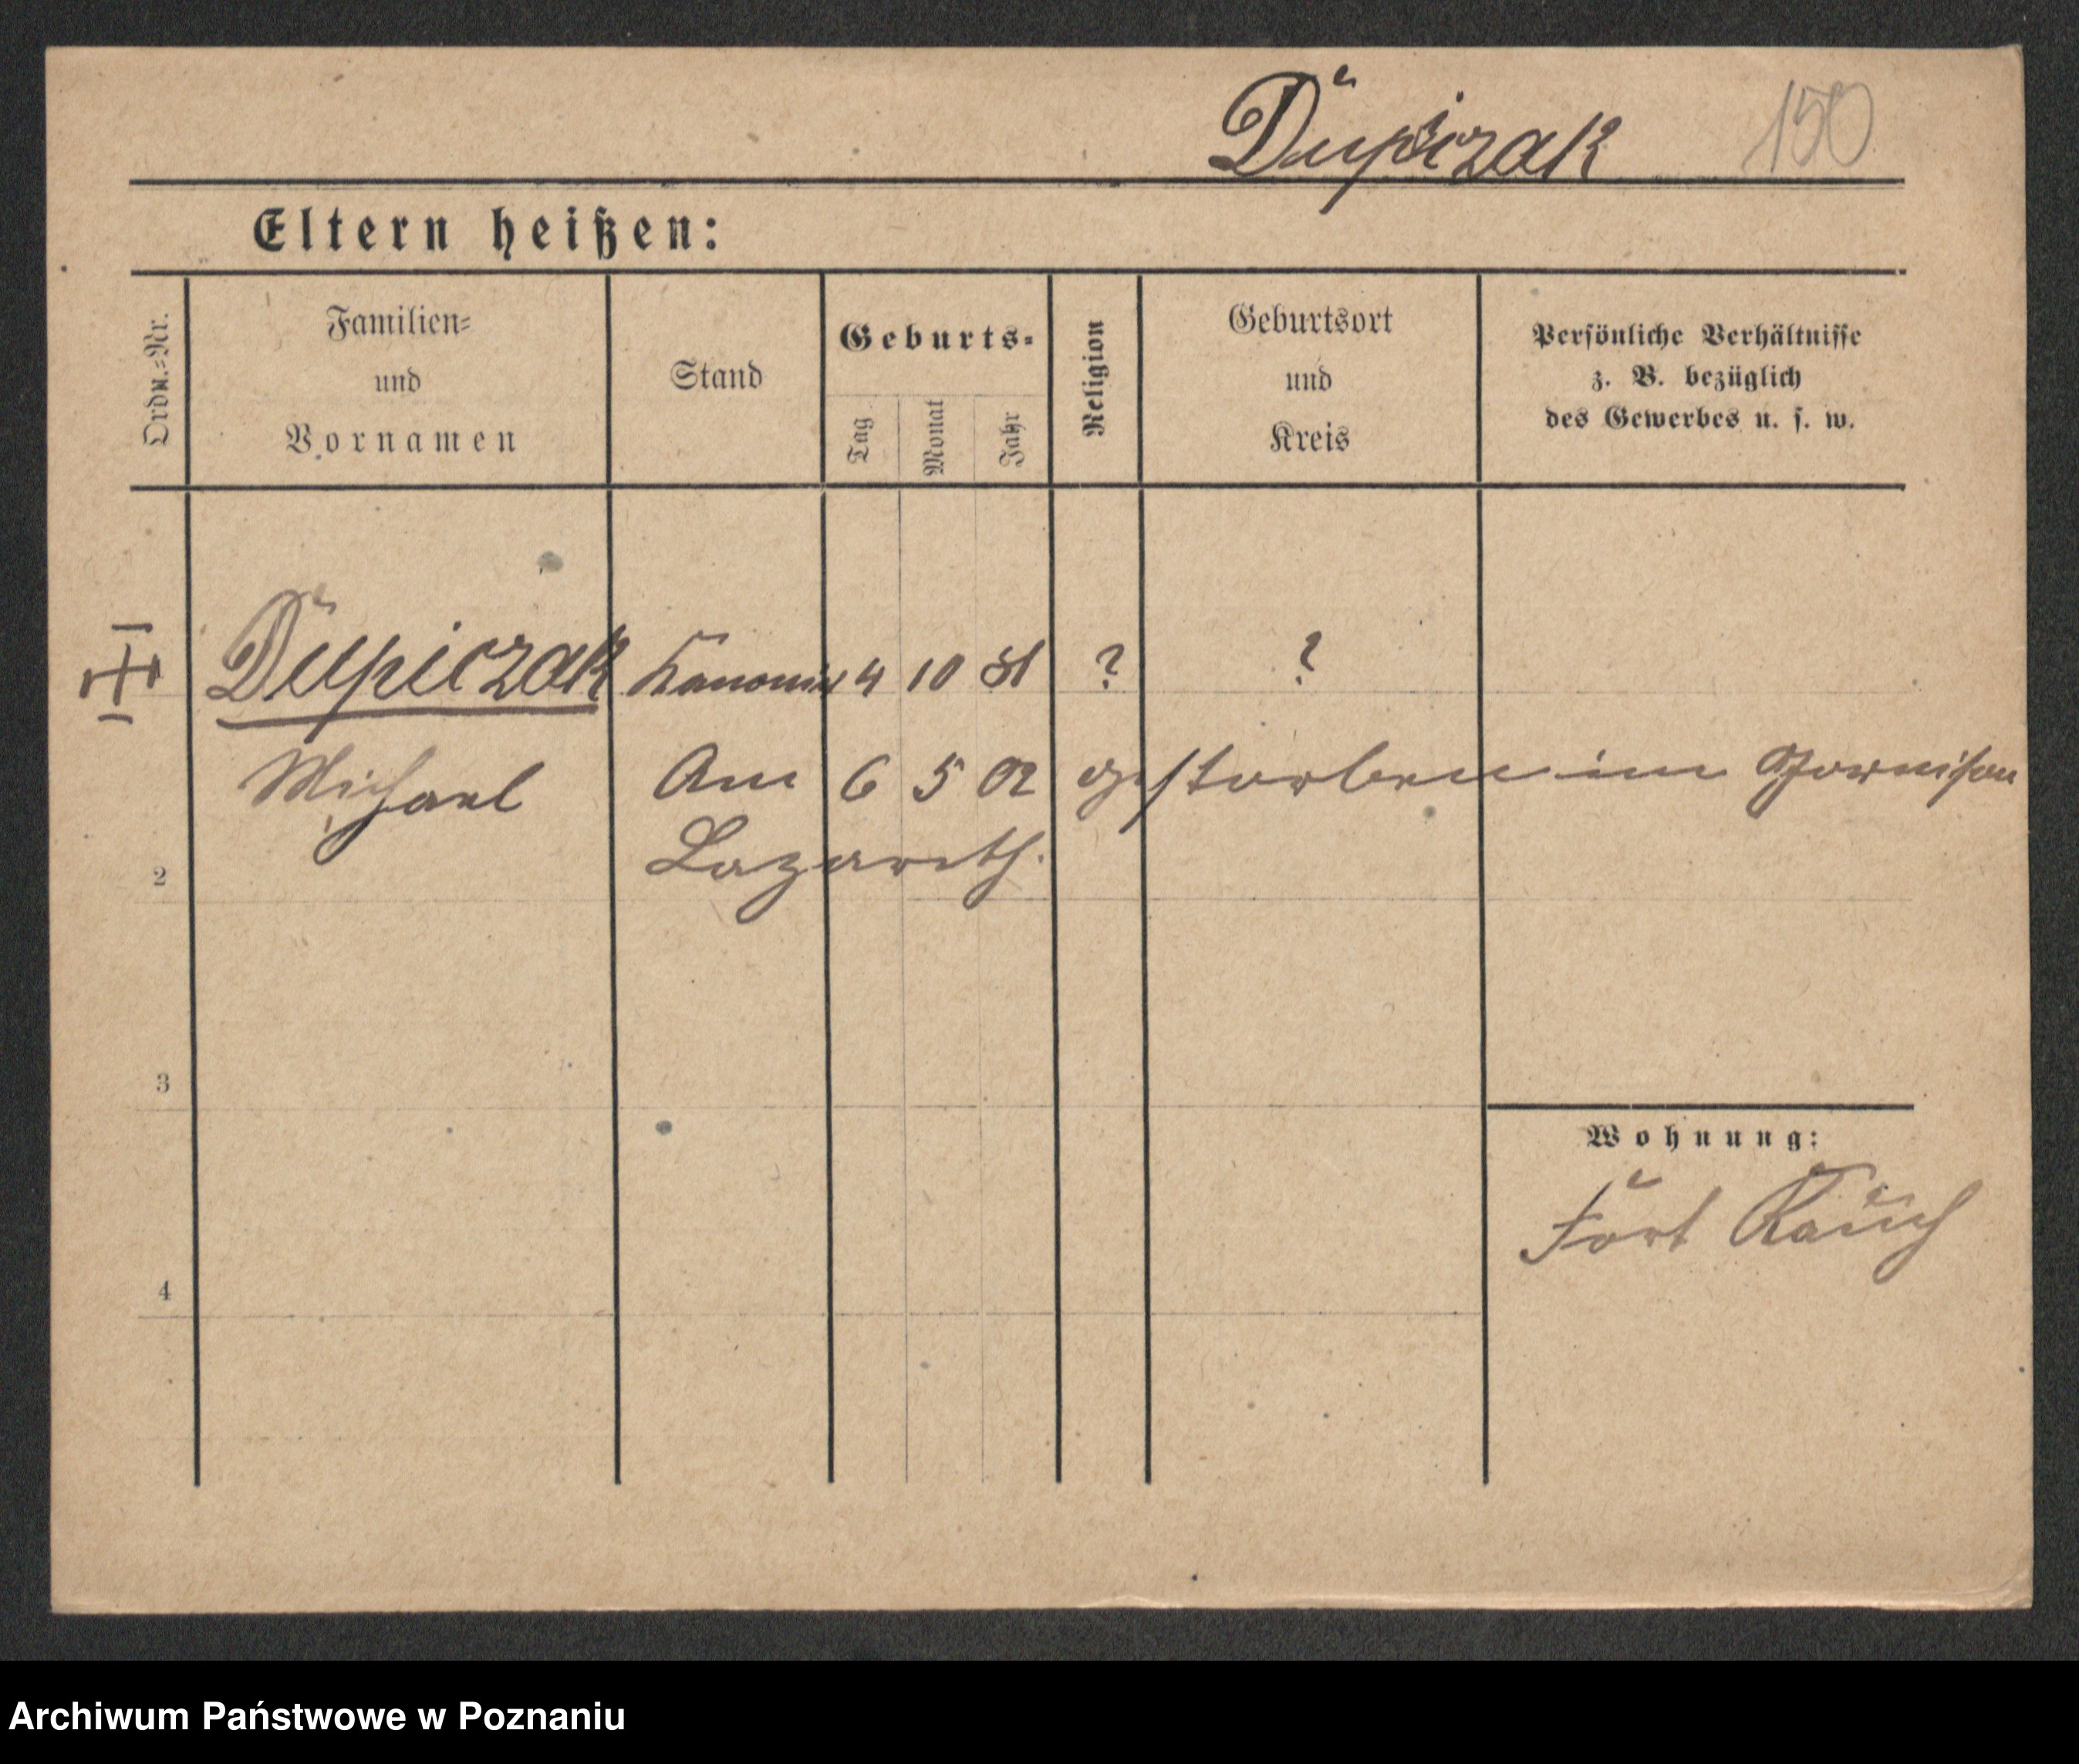 Dupiczak 150
Eltern heißen:
Ordn.=Nr.
Familien=
und
Vornamen
Stand
Geburts=
Tag
Monat
Jahr
Religion
Geburtsort
und
Kreis
Persönliche Verhältnisse
z. B. bezüglich
des Gewerbes u. s. w.
Dupiczak Kanonier 4 10 81 ? ?
Michael Am 6 5 02 gestorben im Garnison
Lazareth.
2
3
4
Wohnung:
Fort Rauch
Archiwum Państwowe w Poznaniu